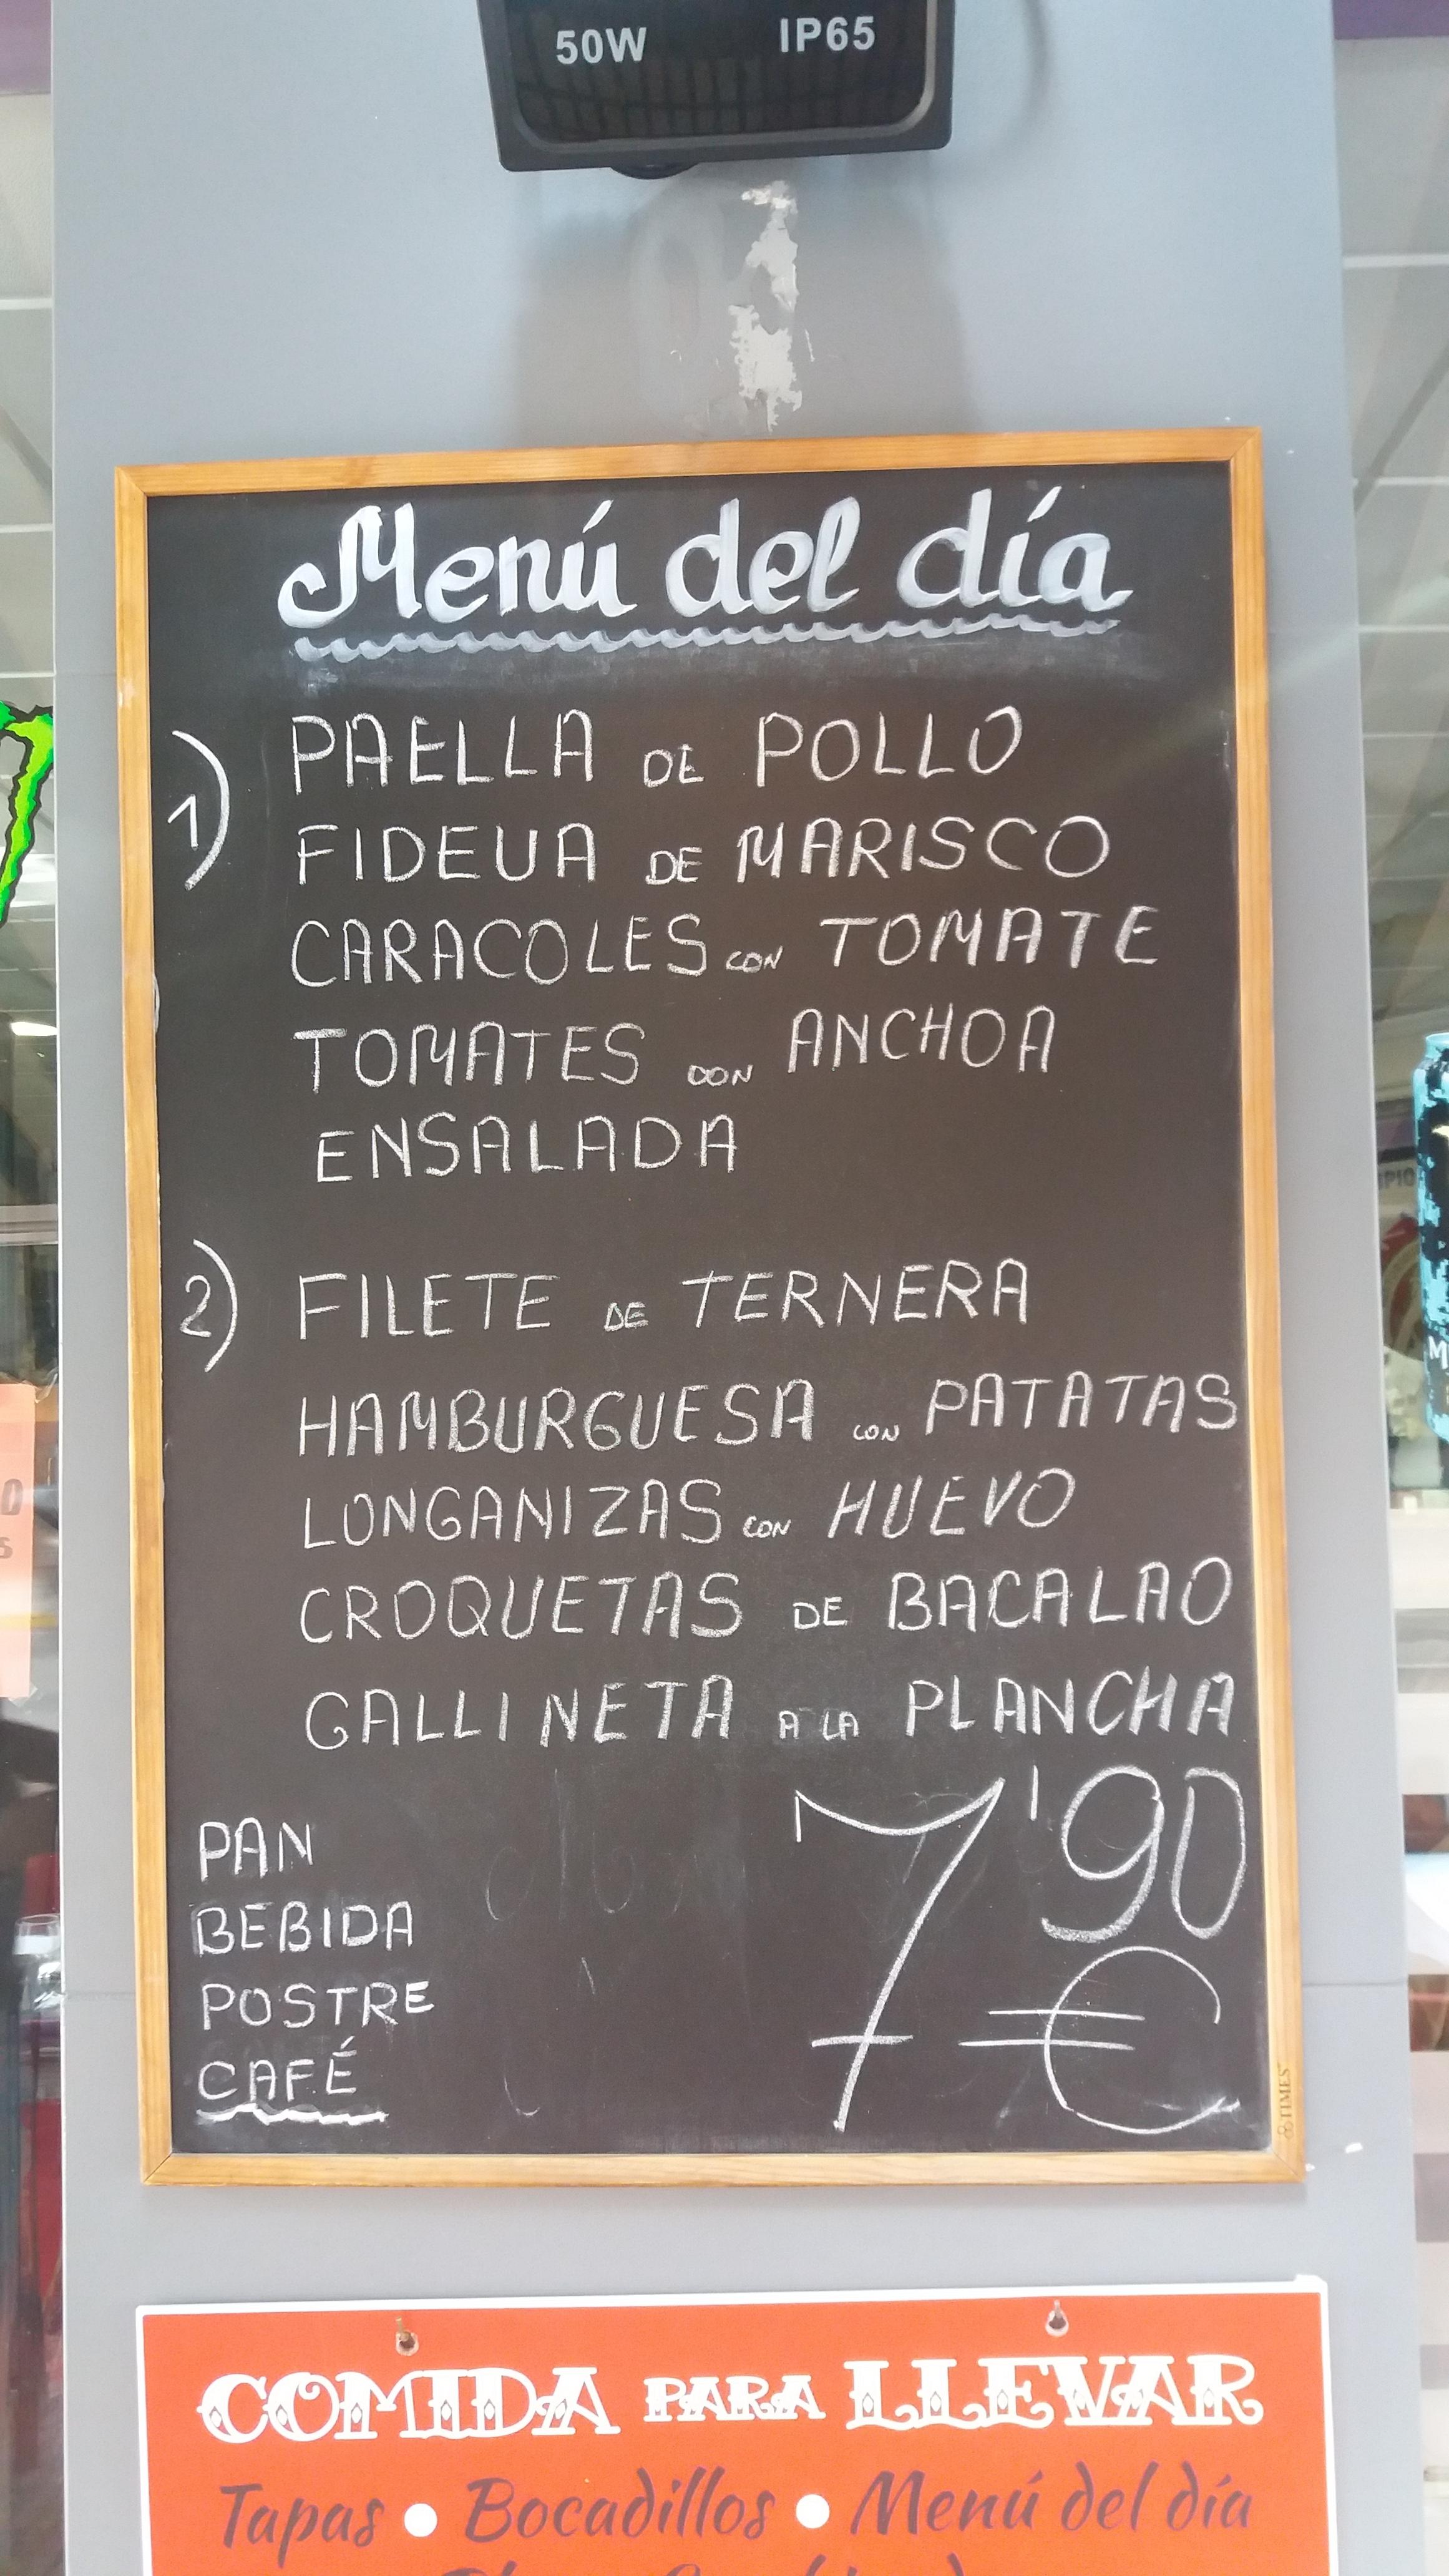 50W IP65
Menú del día
1) PAELLA DE POLLO
FIDEUA DE MARISCO
CARACOLES CON TOMATE
TOMATES CON ANCHOA
ENSALADA
2) FILETE DE TERNERA
HAMBURGUESA CON PATATAS
LONGANIZAS CON HUEVO
CROQUETAS DE BACALAO
GALLINETA A LA PLANCHA
PAN
BEBIDA
POSTRE
CAFÉ
7'90 €
TIMES
COMIDA PARA LLEVAR
Tapas • Bocadillos • Menú del día